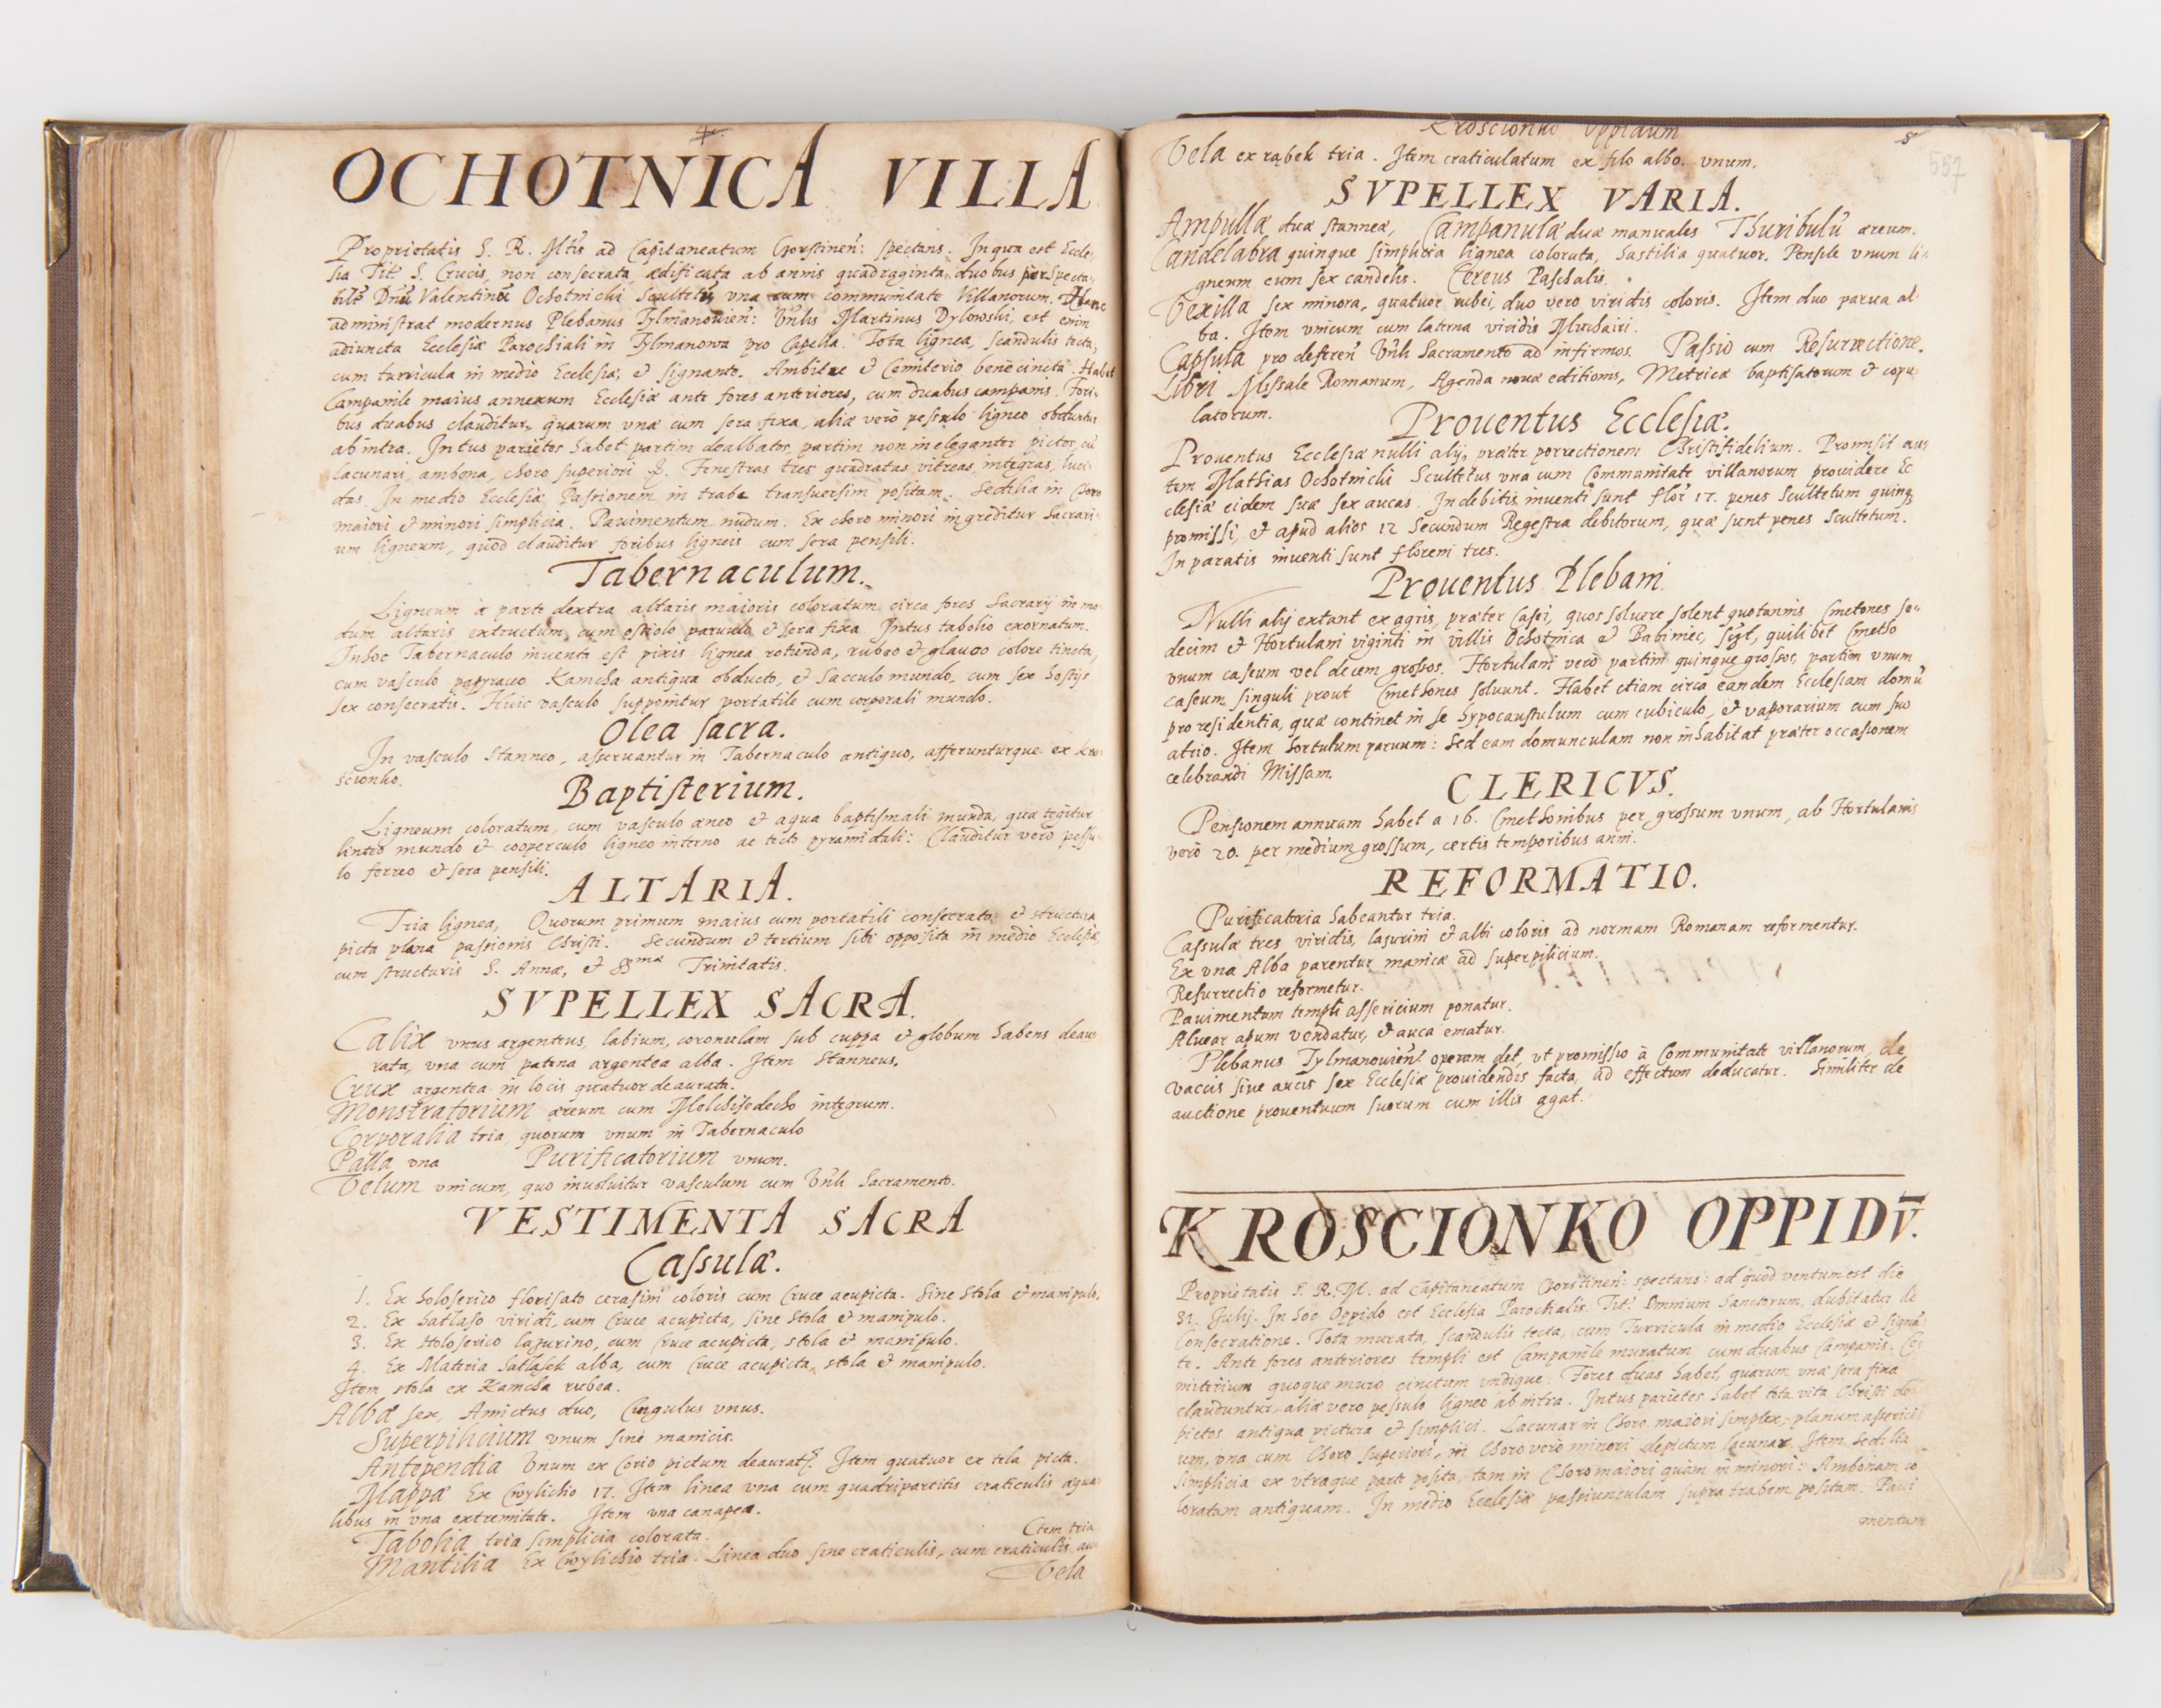 4.
OCHOTNICA VILLA
Proprietatis S. R. Mtis ad Capitaneatum Czorstinen: spectans. In qua est Eccle-
sia Tit: S. Crucis, non consecrata, ædificata ab annis quadraginta duobus per specta-
bile Dnū Valentinū Ochotnicki Scultetū una cum communitate Villanorum. Hanc
administrat modernus Plebanus Tylmanowien: Vnlis Martinus Dylowski, est enim
adiuncta Ecclesiæ Parochiali in Tylmanowa pro Capella. Tota lignea, scandulis tecta,
cum turricula in medio Ecclesiæ, & signante. Ambitu & Cœmiterio bene cincta. Habet
Campanile maius annexum Ecclesiæ ante fores anteriores, cum duabus campanis. Fori-
bus duabus clauditur, quarum una cum sera fixa, aliæ verò pessulo ligneo obduntur
ab intra. Intus parietes habet partim dealbatos, partim non ineleganter pictos, cū
lacunari, ambona, choro superiori &. Fenestras tres quadratas vitreas, integras, luci-
das. In medio Ecclesiæ Passionem in trabe transuersim positam. Sedilia in Choro
maiori & minori simplicia. Pauimentum nudum. Ex choro minori ingreditur Sacrari-
um ligneum, quod clauditur foribus ligneis cum sera pensili.
Tabernaculum.
Ligneum à parte dextra altaris maioris coloratum circa fores Sacrarij in mo-
dum altaris extructum, cum ostiolo paruulo & sera fixa. Intus tabolio exornatum.
In hoc Tabernaculo inuenta est pixis lignea rotunda, rubeo & glauco colore tincta,
cum vasculo papyraceo Kamcha antiqua obducto, & sacculo mundo, cum sex hostijs
sex consecratis. Huic vasculo supponitur portatile cum corporali mundo.
Olea sacra.
In vasculo stanneo, asseruantur in Tabernaculo antiquo, afferunturque ex Kro-
scionko.
Baptisterium.
Ligneum coloratum, cum vasculo æneo & aqua baptismali munda, qua tegitur
linteo mundo & cooperculo ligneo interno ac tecto pyramidali: Clauditur verò pessu-
lo ferreo & sera pensili.
ALTARIA.
Tria lignea, Quorum primum maius cum portatili consecrato & structura
picta plana passionis Christi. Secundum & tertium sibi opposita in medio Ecclesiæ
cum structuris S. Annæ, & SSmæ Trinitatis.
SVPELLEX SACRA.
Calix unus argenteus, labium, coronulam sub cuppa & globum habens deau-
rata, una cum patena argentea alba. Item Stanneus.
Crux argentea in locis quatuor deaurata.
Monstratorium æreum cum Melchisedecho integrum.
Corporalia tria, quorum unum in Tabernaculo
Palla una Purificatorium unum.
Velum unicum, quo inuoluitur vasculum cum Vnli Sacramento.
VESTIMENTA SACRA
Casulæ.
1. Ex holoserico florisato cerasini coloris cum Cruce acupicta. Sine Stola & manipulo.
2. Ex hatlaso viridi, cum Cruce acupicta, sine Stola & manipulo.
3. Ex Holoserico lasurino, cum Cruce acupicta, stola & manipulo.
4. Ex Materia Satlasek alba, cum Cruce acupicta, stola & manipulo.
Item stola ex Kamcha rubea.
Albæ sex, Amictus duo, Cingulus unus.
Superpilicium unum sine manicis.
Antependia Vnum ex Corio pictum deaurato. Item quatuor ex tela picta.
Mappæ Ex Cwylicho 17. Item linea una cum quadripartitis craticulis æqua-
libus in una extremitate. Item una canapea.
Tabolia tria simplicia colorata. Item tria
Mantilia Ex Cwylichio tria. Linea duo sine craticulis, cum craticulis
Vela
Kroscionko Oppidum
5
557
Vela ex rąbek tria. Item craticulatum ex filo albo unum.
SVPELLEX VARIA.
Ampullæ duæ stanneæ, Campanulæ duæ manuales Thuribulū æreum.
Candelabra quinque simplicia lignea colorata, hastilia quatuor. Pensile unum li-
gneum cum sex candelis. Cereus Paschalis.
Vexilla sex minora, quatuor rubei, duo vero viridis coloris. Item duo parua al-
ba. Item unicum cum laterna viridis Muchairi.
Capsula pro deferen Vnli Sacramento ad infirmos. Passio cum Resurrectione.
Libri Missale Romanum, Agenda nouæ editionis, Metricæ baptisatorum & copu-
latorum.
Prouentus Ecclesiæ.
Prouentus Ecclesiæ nulli alij, præter porrectionem Christifidelium. Promisit au-
tem Mathias Ochotnicki Scultetus una cum Communitate villanorum prouidere Ec
clesiæ eidem suæ sex aucas. In debitis inuenti sunt flor 17. penes Scultetum quinq
promissi, & apud alios 12 Secundum Regestra debitorum, quæ sunt penes Scultetum.
In paratis inuenti sunt floreni tres.
Prouentus Plebani.
Nulli alij extant ex agris, præter Casei, quos soluere solent quotannis Cmetones se-
decim & Hortulani viginti in villis Ochotnica & Babiniec, sīgt, quilibet Cmetho
unum caseum vel decem grossos. Hortulani verò partim quinque grossos, partim unum
caseum, singuli prout Cmethones soluunt. Habet etiam circa eandem Ecclesiam domū
pro residentia, quæ continet in se hypocaustulum cum cubiculo, & vaporarium cum suo
atrio. Item hortulum paruum: Sed eam domunculam non inhabitat præter occasionem
celebrandi Missam.
CLERICVS.
Pensionem annuam habet a 16. Cmethonibus per grossum unum, ab Hortulanis
verò 20. per medium grossum, certis temporibus anni.
REFORMATIO.
Purificatoria habeantur tria.
Casulæ tres viridis, lasurini & albi coloris ad normam Romanam reformentur.
Ex una Alba parentur manicæ ad superpilicium.
Resurrectio reformetur.
Pauimentum templi assericium ponatur.
Aluear apum vendatur, & auca ematur.
Plebanus Tylmanouien operam det, ut promissio à Communitate villanorum, de
vaccis siue aucis sex Ecclesiæ prouidendis facta, ad effectum deducatur. Similiter de
auctione prouentuum suorum cum illis agat.
KROSCIONKO OPPIDV̄.
Proprietatis S. R. M. ad Capitaneatum Czorstinen: spectans: ad quod ventum est die
31. Julij. In hoc Oppido est Ecclesia Parochialis. Tit: Omnium Sanctorum, dubitatur de
Consecratione. Tota murata, scandulis tecta, cum Turricula in medio Ecclesiæ & signā-
te. Ante fores anteriores templi est Campanile muratum cum duabus Campanis. Cœ-
miterium quoque muro cinctum undique. Fores duas habet, quarum una sera fixa
clauduntur, aliæ vero pessulo ligneo ab intra. Intus parietes habet tota vita Christi de-
pictos antiqua pictura & simplici. Lacunar in Choro maiori simplex, planum asserici-
um, una cum Choro superiori, in Choro verò minori depictum lacunar. Item Sedilia
simplicia ex utraque parte posita, tam in Choro maiori quàm in minori: Ambonam co
loratam antiquam. In medio Ecclesiæ passiunculam supra trabem positam. Paui
mentum